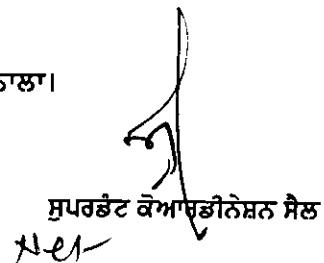 ਨਾਲਾ।
ਸੁਪਰਡੰਟ ਕੋਆਰਡੀਨੇਸ਼ਨ ਸੈਲ